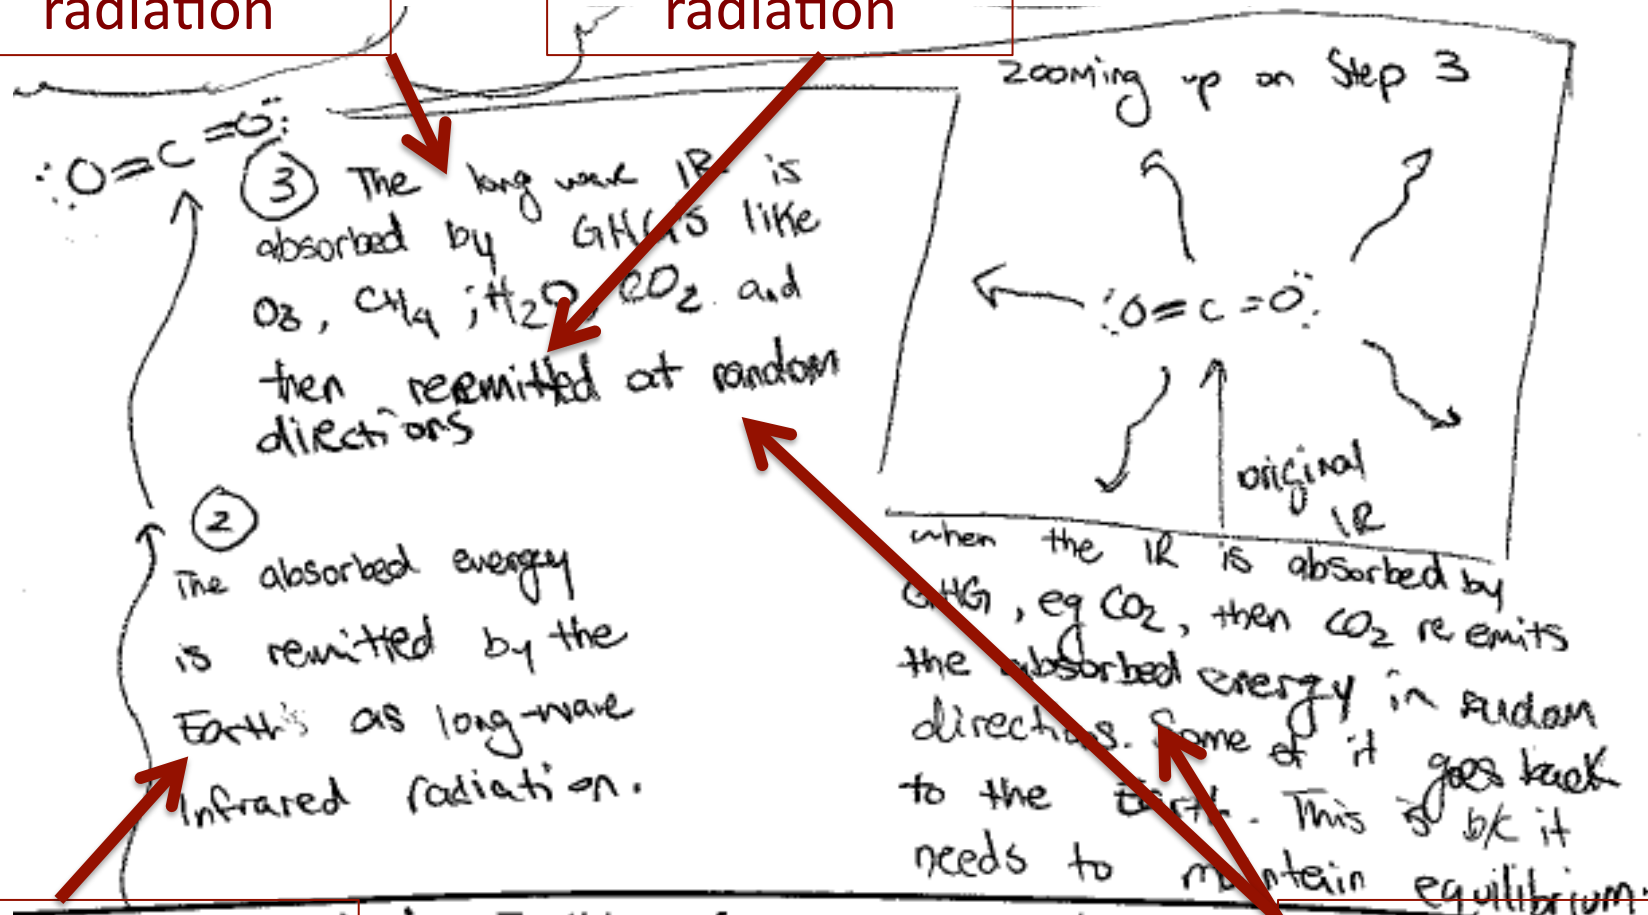 radiation
radiation
zooming up on Step 3
:O=C=O:
③ The long wave IR is
absorbed by GHGs like
O3, CH4, H2O, CO2 and
then reemitted at random
directions
:O=C=O:
original
IR
②
The absorbed energy
is remitted by the
Earth's as long-wave
Infrared radiation.
when the IR is absorbed by
GHG, eg CO2, then CO2 re emits
the absorbed energy in random
directions. Some of it goes back
to the Earth. This is b/c it
needs to maintain equilibrium.